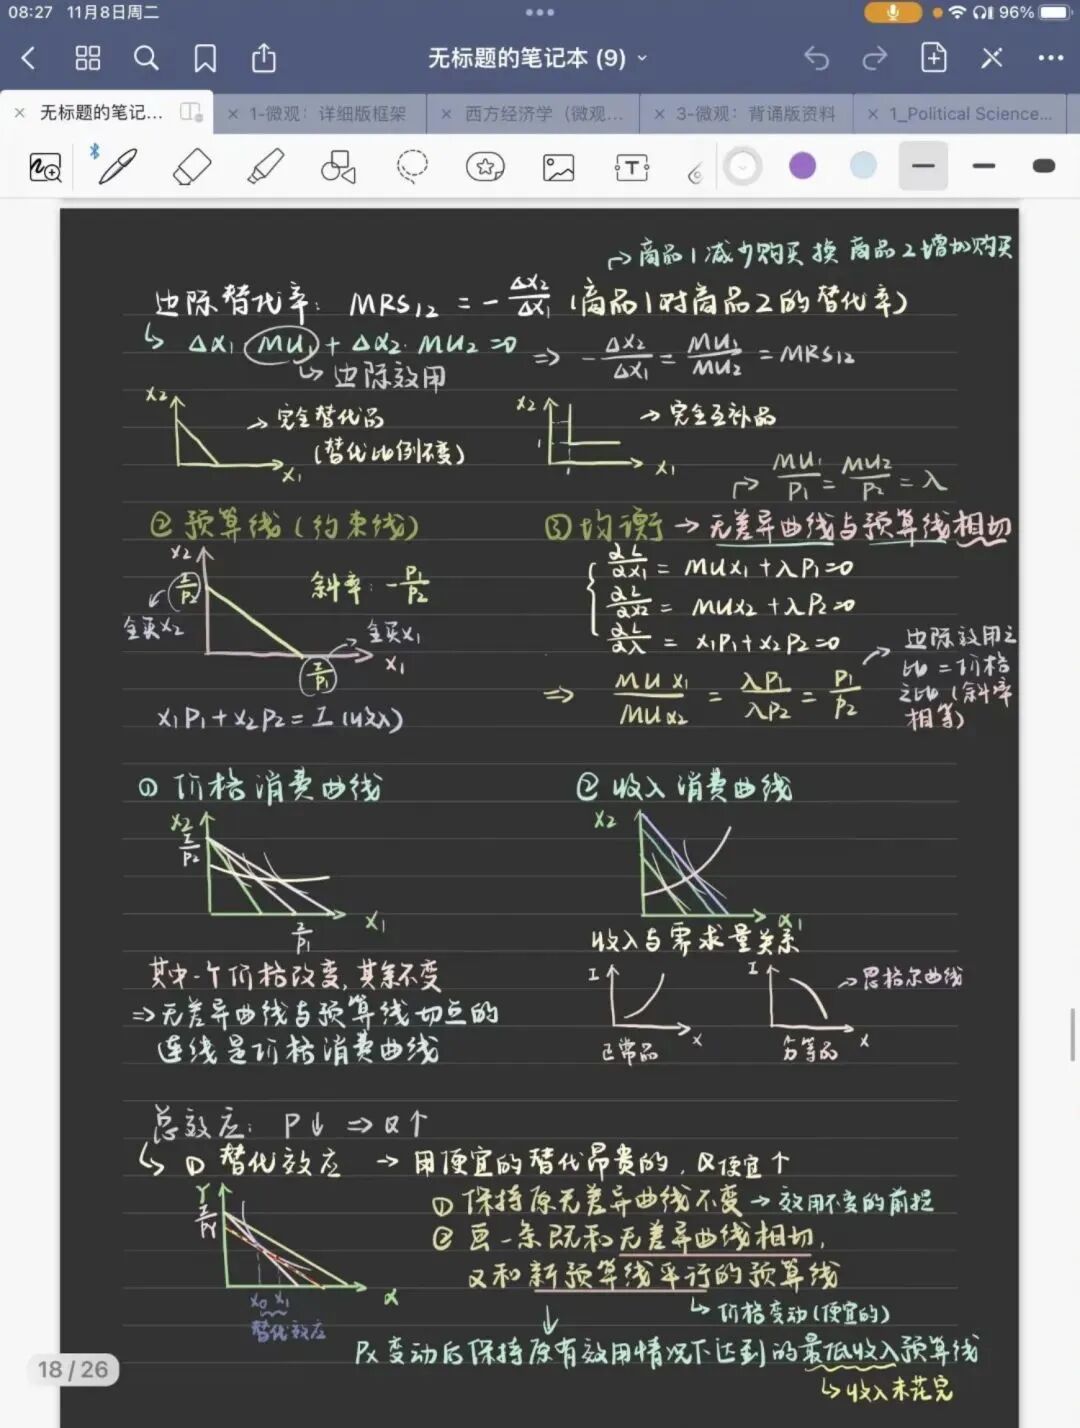 08:27 11月8日周二
96%
无标题的笔记本 (9)
无标题的笔记...
1-微观：详细版框架
西方经济学（微观...
3-微观：背诵版资料
1_Political Science...
→商品1减少购买 换 商品2增加购买
边际替代率: MRS₁₂ = -Δx₂/Δx₁ (商品1对商品2的替代率)
↳ Δx₁ MU₁ + Δx₂·MU₂ = 0 ⇒ -Δx₂/Δx₁ = MU₁/MU₂ = MRS₁₂
↳ 边际效用
x₂ → 完全替代品
(替代比例不变)
x₁
x₂ → 完全互补品
1
1
x₁
→ MU₁/P₁ = MU₂/P₂ = λ
② 预算线 (约束线)
③ 均衡 → 无差异曲线与预算线相切
x₂
I/P₂
全买x₂
斜率: -P₁/P₂
→ 全买x₁
x₁
I/P₁
x₁P₁ + x₂P₂ = I (收入)
∂L/∂x₁ = MUx₁ + λP₁ = 0
∂L/∂x₂ = MUx₂ + λP₂ = 0
∂L/∂λ = x₁P₁ + x₂P₂ = 0
⇒ MUx₁/MUx₂ = λP₁/λP₂ = P₁/P₂
→ 边际效用之
比 = 价格
之比 (斜率
相等)
① 价格消费曲线
② 收入消费曲线
x₂
I/P₂
x₁
I/P₁
x₂
x₁
其中一个价格改变, 其余不变
⇒ 无差异曲线与预算线切点的
连线是价格消费曲线
收入与需求量关系
I
x
正常品
I
→ 恩格尔曲线
x
劣等品
总效应: P↓ ⇒ Q↑
↳ ① 替代效应 → 用便宜的替代昂贵的, Q便宜↑
Y
I/PY
x₀ x₁
x
替代效应
① 保持原无差异曲线不变 → 效用不变的前提
② 画一条既和无差异曲线相切,
又和新预算线平行的预算线
↳ 价格变动(便宜的)
↓
Px变动后保持原有效用情况下达到的最低收入预算线
↳ 收入未花完
18 / 26